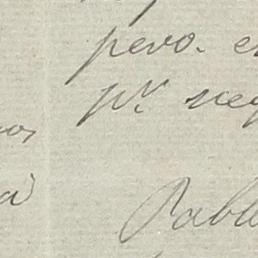 pero. e
pr neg
os,
a
Pabl